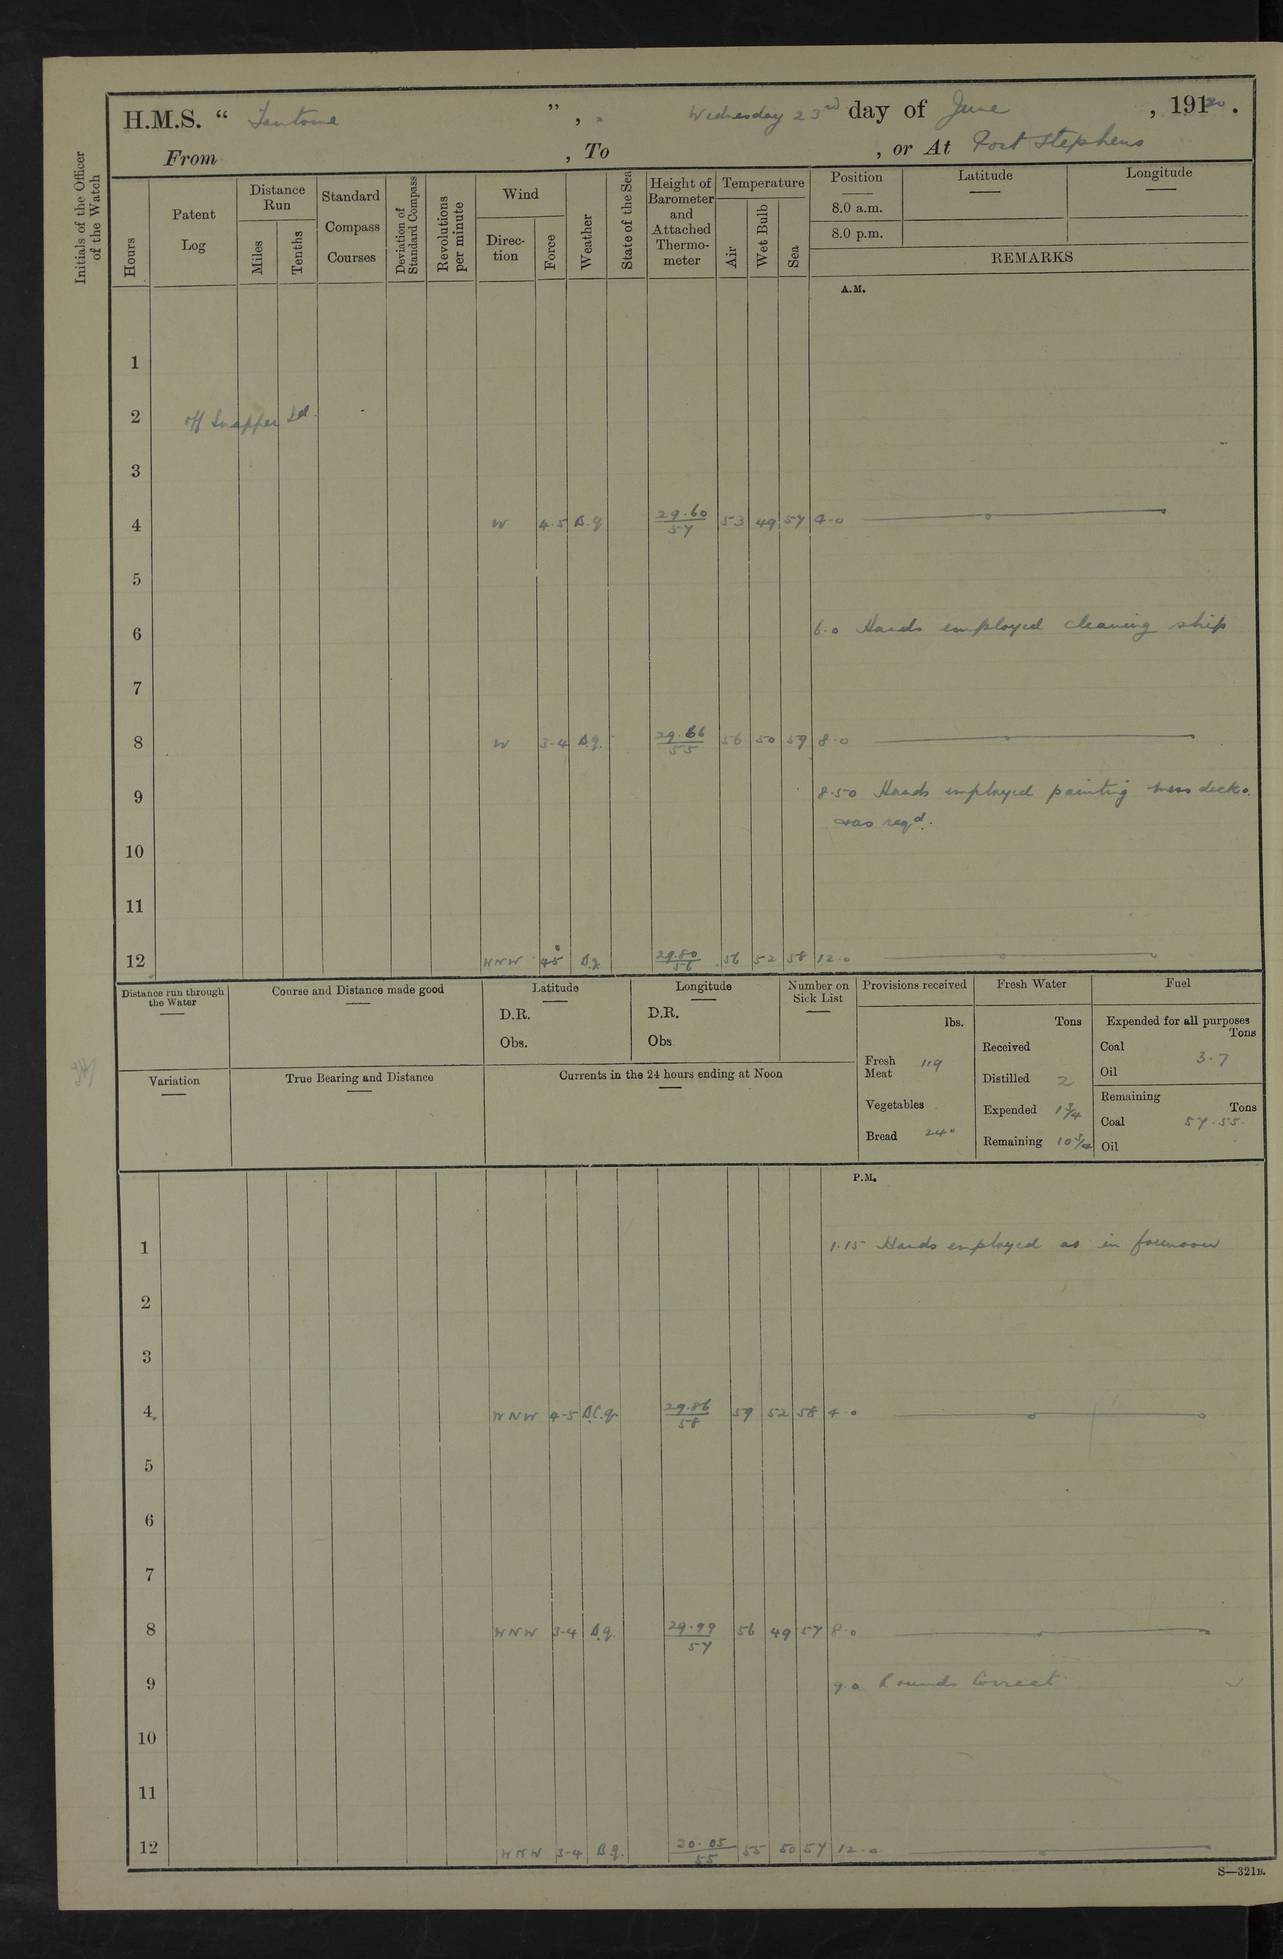 H.M.S. “ Fantome ”, Wednesday 23rd day of June , 19120.
From , To , or At Port Stephens
Initials of the Officer of the Watch
Hours
Patent Log
Distance Run
Miles
Tenths
Standard Compass Courses
Deviation of Standard Compass
Revolutions per minute
Wind
Direction
Force
Weather
State of the Sea
Height of Barometer and Attached Thermometer
Temperature
Air
Wet Bulb
Sea
Position Latitude Longitude
8.0 a.m.
8.0 p.m.
REMARKS
A.M.
1
2 off Snapper Id.
3
4 W 4.5 B.q 29.60 57 53 49 57 4.0
5
6 6.0 Hands employed cleaning ship
7
8 W 3-4 B.q. 29.66 55 56 50 59 8.0
9 8.50 Hands employed painting mess decks.
&as reqd.
10
11
12 WNW 45 B.q. 29.80 56 56 52 58 12.0
Distance run through the Water
Course and Distance made good
Latitude
D.R.
Obs.
Longitude
D.R.
Obs
Number on Sick List
Provisions received
lbs.
Fresh Meat 119
Vegetables
Bread 240
Fresh Water
Tons
Received
Distilled 2
Expended 1 3/4
Remaining 10 3/4
Fuel
Expended for all purposes
Tons
Coal 3.7
Oil
Remaining
Tons
Coal 57.55
Oil
Variation
True Bearing and Distance
Currents in the 24 hours ending at Noon
P.M.
1 1.15 Hands employed as in forenoon
2
3
4 WNW 4-5 B.C.q. 29.86 58 59 52 58 4.0
5
6
7
8 WNW 3-4 B.q. 29.99 57 56 49 57 8.0
9 9.0 Rounds Correct
10
11
12 WNW 3-4 B.q. 20.05 55 55 50 57 12.0
S—321B.